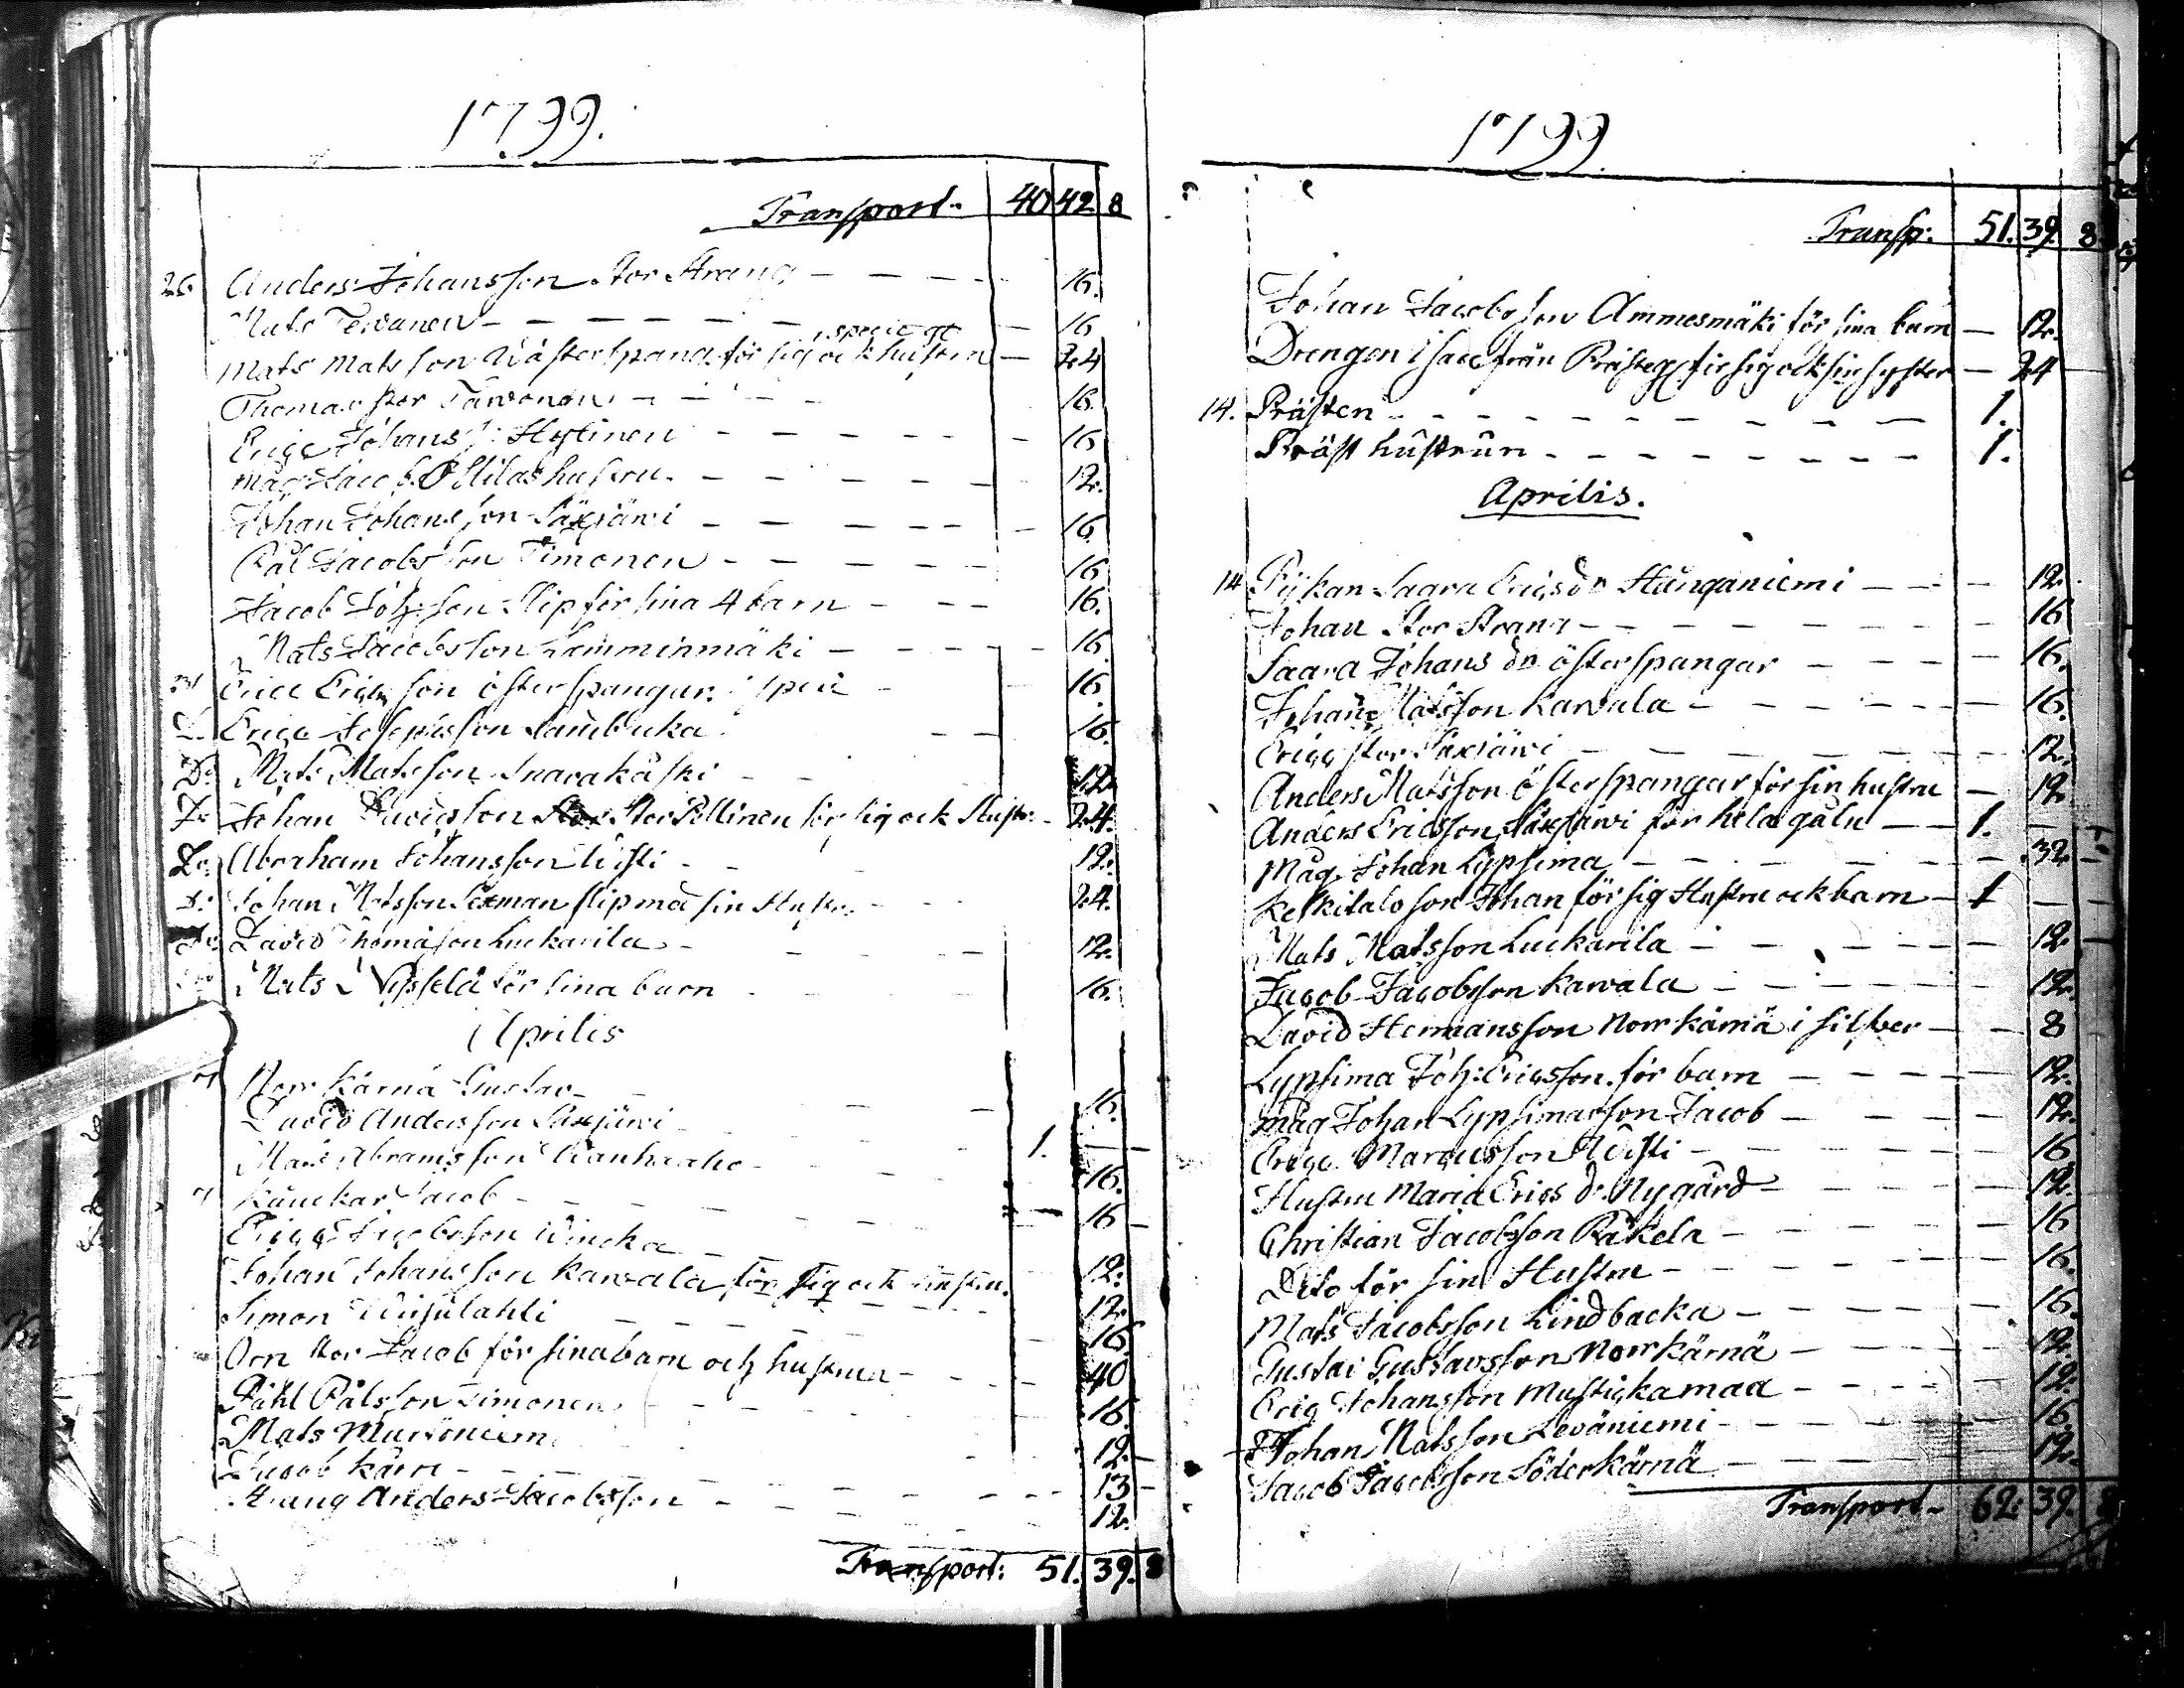 1799.
Transport. 40 42 8
26 Anders Johansson Stor Strang 16.
Mats Tervanen 16
specie gt
Mats Matsson Wästerspang för sig ock hustrun 24
Thomas ster Tarvonen 16.
Eric Johans Hostinen 16
mag Jacob Stilas hustru. 12.
Johan Johansson Säxjärvi 16
Pål Jacobsson Timonen 16
Jacob Joh: son Slip för sina 4 barn 16.
Mats Jacobsson Lamminmäki 16
31 Eric Ericsson österspangar. i speci 16
D. Erice Josephsson Sambuka 16.
Do Mats Matsson Snarakåski 12
Do Johan Davidsson Stor Pellinen för sig ock Hustr. 24.
Do. Abraham Johansson Wisti 12.
D. Johan Matsson Sexman slip mä sin Hustr. 24.
Do. David Thomasson Luckarila 12.
Mats för sina barn 16.
Aprilis
Norr Kärnä Gustav 16.
David Andersson Säxjärvi 1.
Mats Abramsson Wanhaaho 16.
Känckar Jacob 16
Ericg Jacobsson Wincka 12.
Johan Johansson Karvala för sig ock hustru. 12.
Simon Wisulahti 16.
Orn stor Jacob för sina barn och hustrun 40
Påhl Pålsson Timonen 16.
Mats Muriöniem 12.
Jacob Kärn 13
Strang Anders Jacobsson 12.
Transport: 51. 39. 8
1799.
Transp: 51. 39. 8
Johan Jacobsson Ammesmäki för sina barn 12.
Drengen Isac från Prästeg för sig ock sin syster 24
14. Prästen 1.
Präst hustrun 1.
Aprilis.
14 Pijkan Saara Ericsdr Hånganiemi 12
Johan Stor Strang 16
Saara Johans dr österspangar 16.
Johan Matsson Karvala 16.
Ericg stor Saxjärvi 12.
Anders Matsson österspangar för sin hustru 12
Anders Ericsson Säxjärvi för hela gåln 1.
Måg Johan Lypsima 32
Keskitalo son Johan för sig Hustru ock barn 1
Mats Matsson Luckarila 12
Jacob Jacobsson Karvala 12.
David Hermansson Norrkärnä i silfver 8
Lypsima Joh: Ericsson för barn 12.
måg Johan Lypsimasson Jacob 12.
Ericg Marcusson Wisti 16
Hustru Maria Erics dr. Nygård 12.
Christian Jacobsson Räkela 16
Dito för sin Hustru 16.
Mats Jacobsson Lindbacka 16.
Gustav Gustavsson Norrkärnä 12
Ericg Johansson Mustickamaa 12.
Johan Matsson Leväniemi 16.
Jacob Jacobsson Söderkärnä 12.
Transport. 62. 39. 8